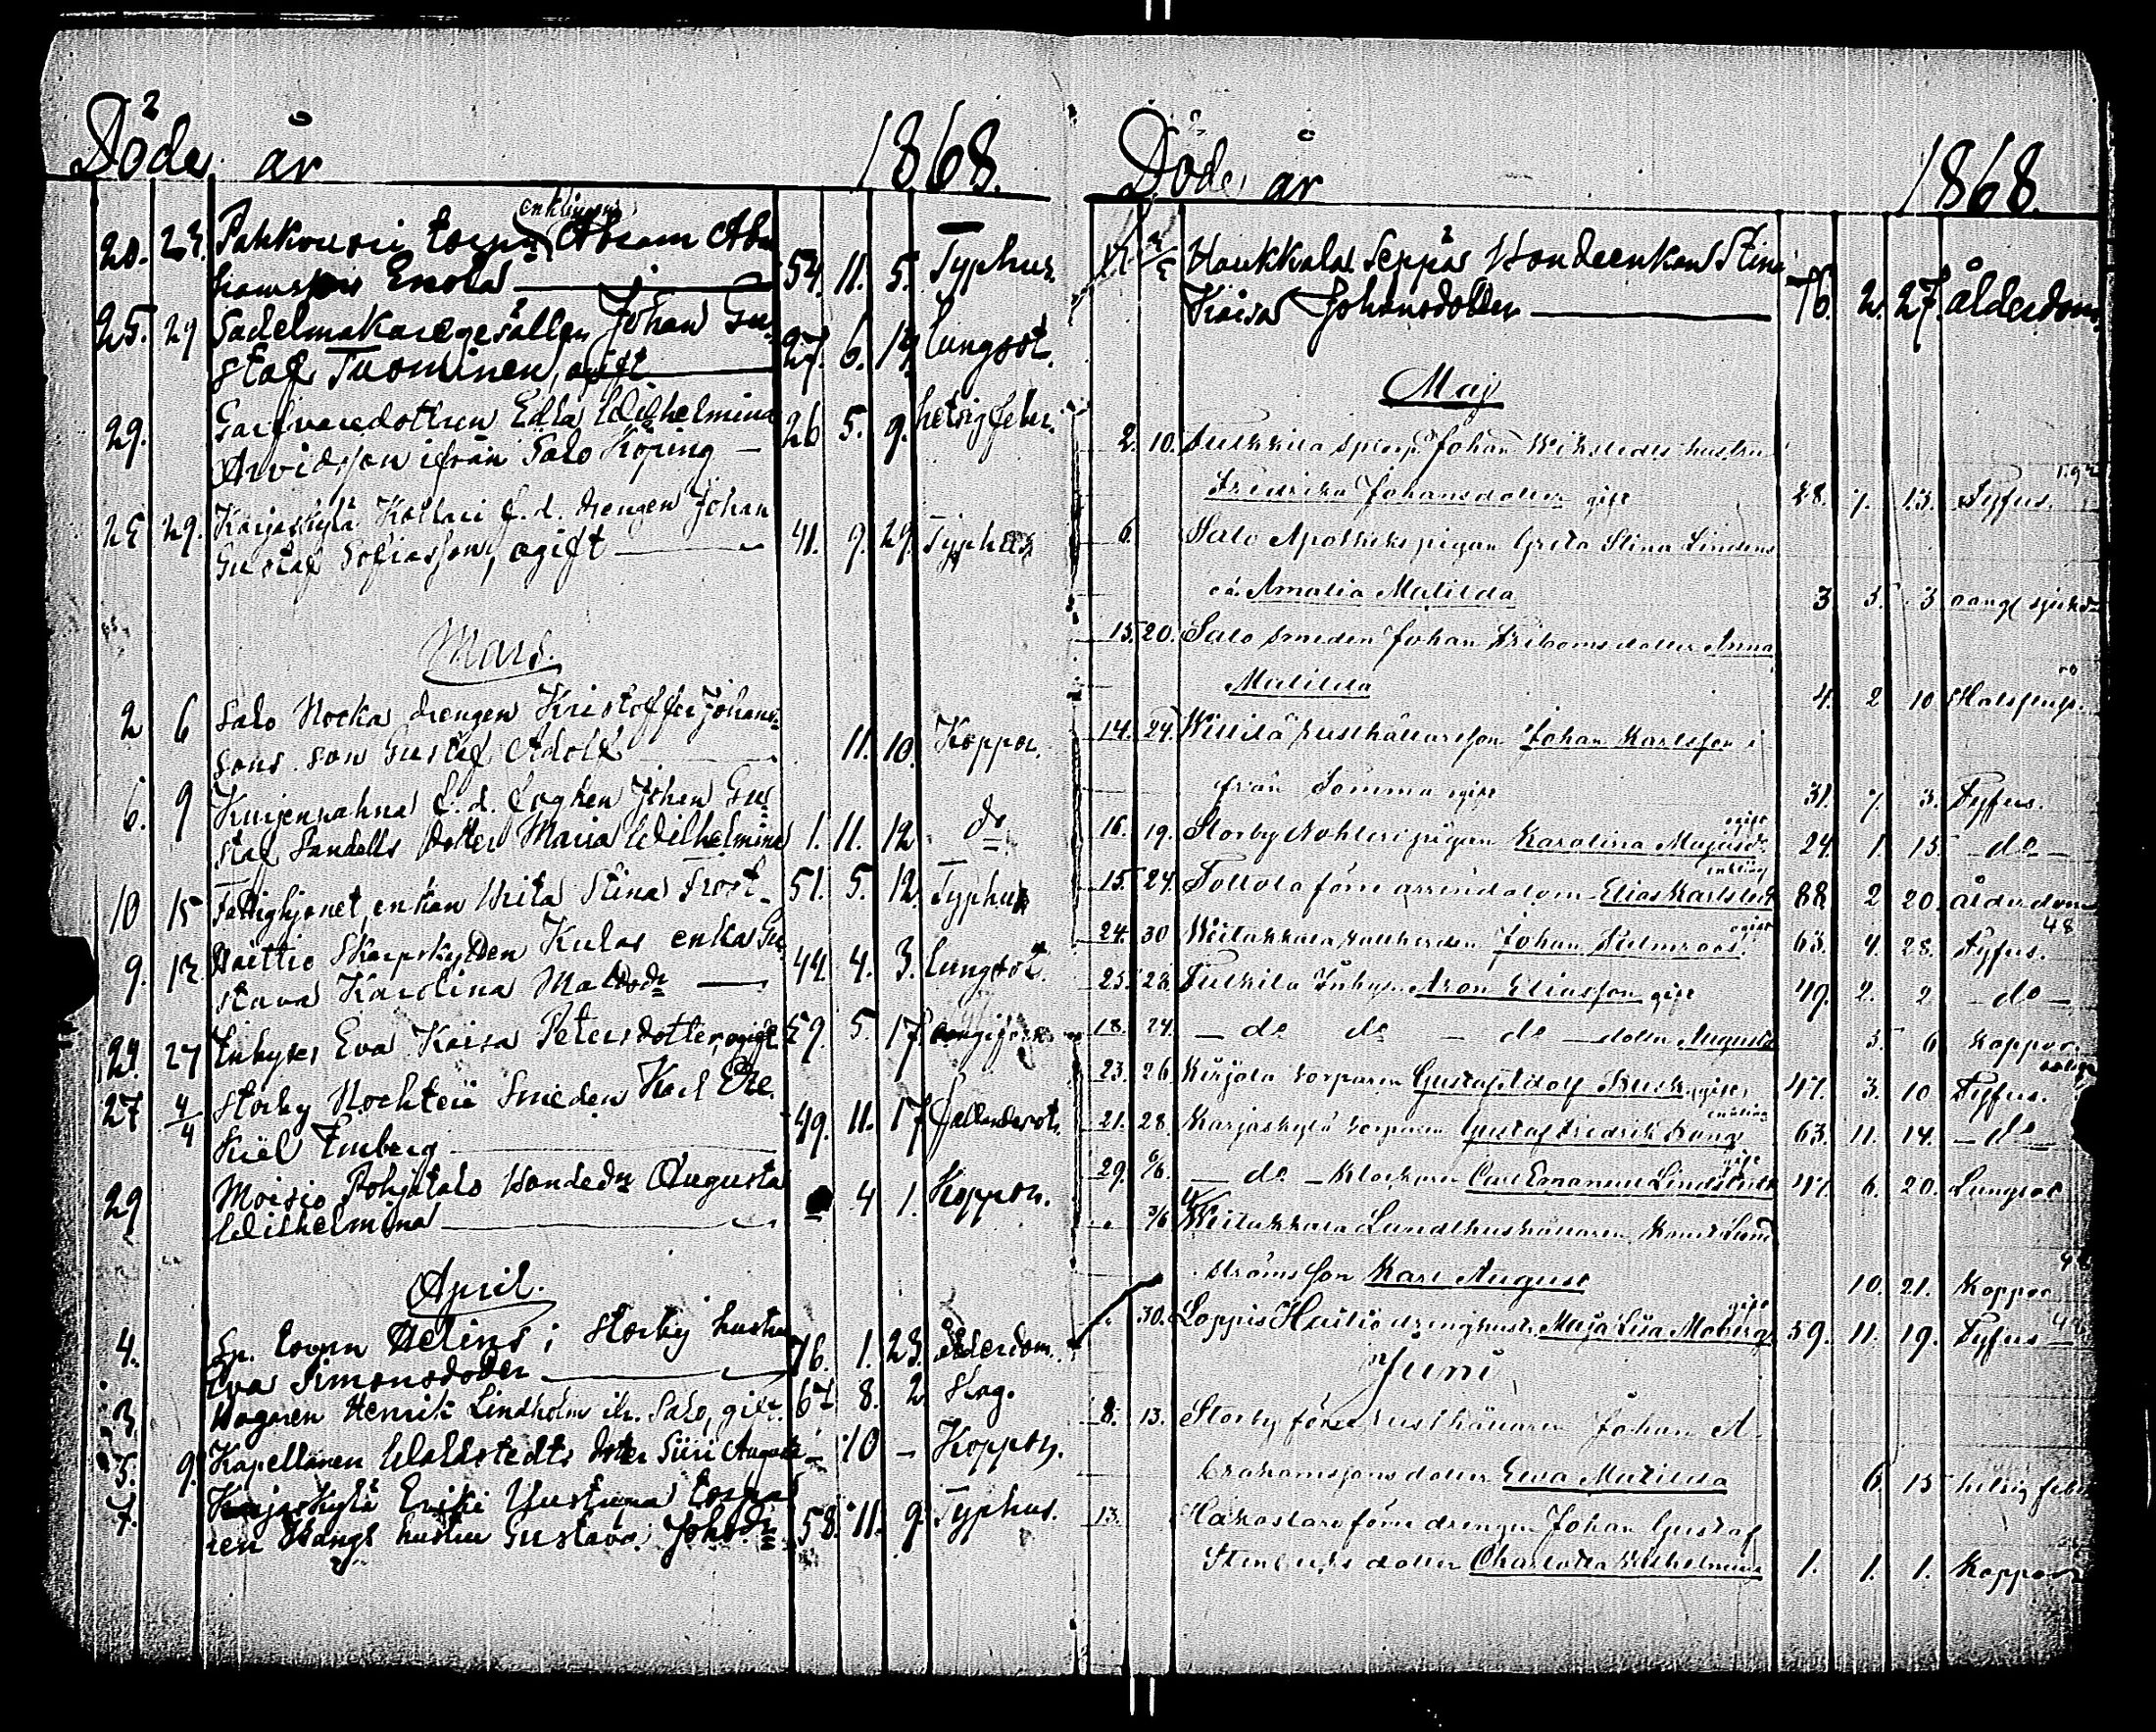 Döde år 1868.
enklingen
20. 23. Pahkouri torp: Abram Abra
hamsson Enola 54. 11. 5. Typhus.
25. 29 Sadelmakaregesällen Johan Gu
staf Tuominen, ogift 27. 6. 19. lungsot.
29. Garfvaredottren Edla Wilhelmina
Arvidsson ifrån Salo Köping 26 5. 9. hetsig feber.
25 29. Karjaskylä Kottari f. d. drengen Johan
Gustaf Sofiasson, ogift 41. 9. 29. Typhus
Mars.
2 6 Salo Nocka drengen Kristoffer Johans-
sons son Gustaf Adolf 11. 10. Koppor.
6. 9 f. d. Johan Gu
staf Sandells dotter Maria Wilhelmina 1. 11. 12 do
10 15 Fattighjonet, enkan Brita Stina Frost 51. 5. 12 Typhus
9. 12. Haittio Skarpskytten Kulas enka Gu
stava Karolina Matsdr 44. 4. 3. lungsot.
22. 27 Inhyses Eva Kaisa Petersdotter, ogift 59. 5. 17.
27 4/4 Storby Nochteri Smeden Karl Eze
kiel Imberg 49. 11. 17 fallandesot.
29 Moisio Pohjatalo bondedr Augusta
Wilhelmina 4 1. Koppor.
April.
4. Sp. torpn Helins i Storby hustru
Eva Simonsdotter 76. 1. 23. ålderdom.
3. Henrik Lindholm ifr. Salo, gift. 67 8. 2 slag.
5. 9. Kapellanen Wahlstedts dotter Siiri Augusta 10 – Koppor.
7. Karjaskylä Eriki torpa
ren Bangs hustru Gustava Johsdr 58. 11. 9. Typhus.
Döde år 1868.
17 Haukkala Seppäs bondeenkan Stina
Kaisa Johansdotter 76. 2. 27. ålderdom.
Maj
2. 10. Johan Wikstedts hustru
Fredrika Johansdotter gift 28. 7. 13. Tyfus.
6. Salo Apotheks pigan Greta Stina Lindens
oä. Amalia Matilda 3 3. 3
15. 20. Salo smeden Johan dotter Anna
Matilda 4. 2 10
14. 24. Wittilä rusthållarsson Johan Karlsson i
från Somma ogift 31. 7. 3. Tyfus.
ogift
16. 19. Storby Nohteri pigan Karolina Majasdr 24. 1. 15. – do –
enkling
15. 24. Tottola förre arrendatorn Elias Karlstedt 88 2 20. ålderdom
ogift 48
24. 30 Johan Palmroos 63. 4. 28. Tyfus.
25. 28. Inhys. Aron Eliasson gift 49. 2. 2 – do –
18. 24. – do do – do – dotter Augusta 3. 6 Koppor.
23. 26 Kirjola torparen Gustaf Adolf gift 47. 3. 10 Tyfus.
enkling
21. 28. Karjaskylä torparen Gustaf Fredrik Bang 63. 11. 14. – do –
gift
29. 6/6 – do – Klockaren Carl Emanuel Lindstedt 47. 6. 20. Lungsot
3/6 Lund
ströms son Karl August 10. 21. Koppor
gift
30. Loppis Haitio drenghustr. Maja Lisa Moberg 39. 11. 19. Tyfus
Juni
8. 13. Storby förre rusthållaren Johan A
brahamssons dotter Ewa Matilda 6. 15 hetsig feber
13. förre drengen Johan Gustaf
dotter Charlotta Wilhelmina 1. 1. 1. Koppor